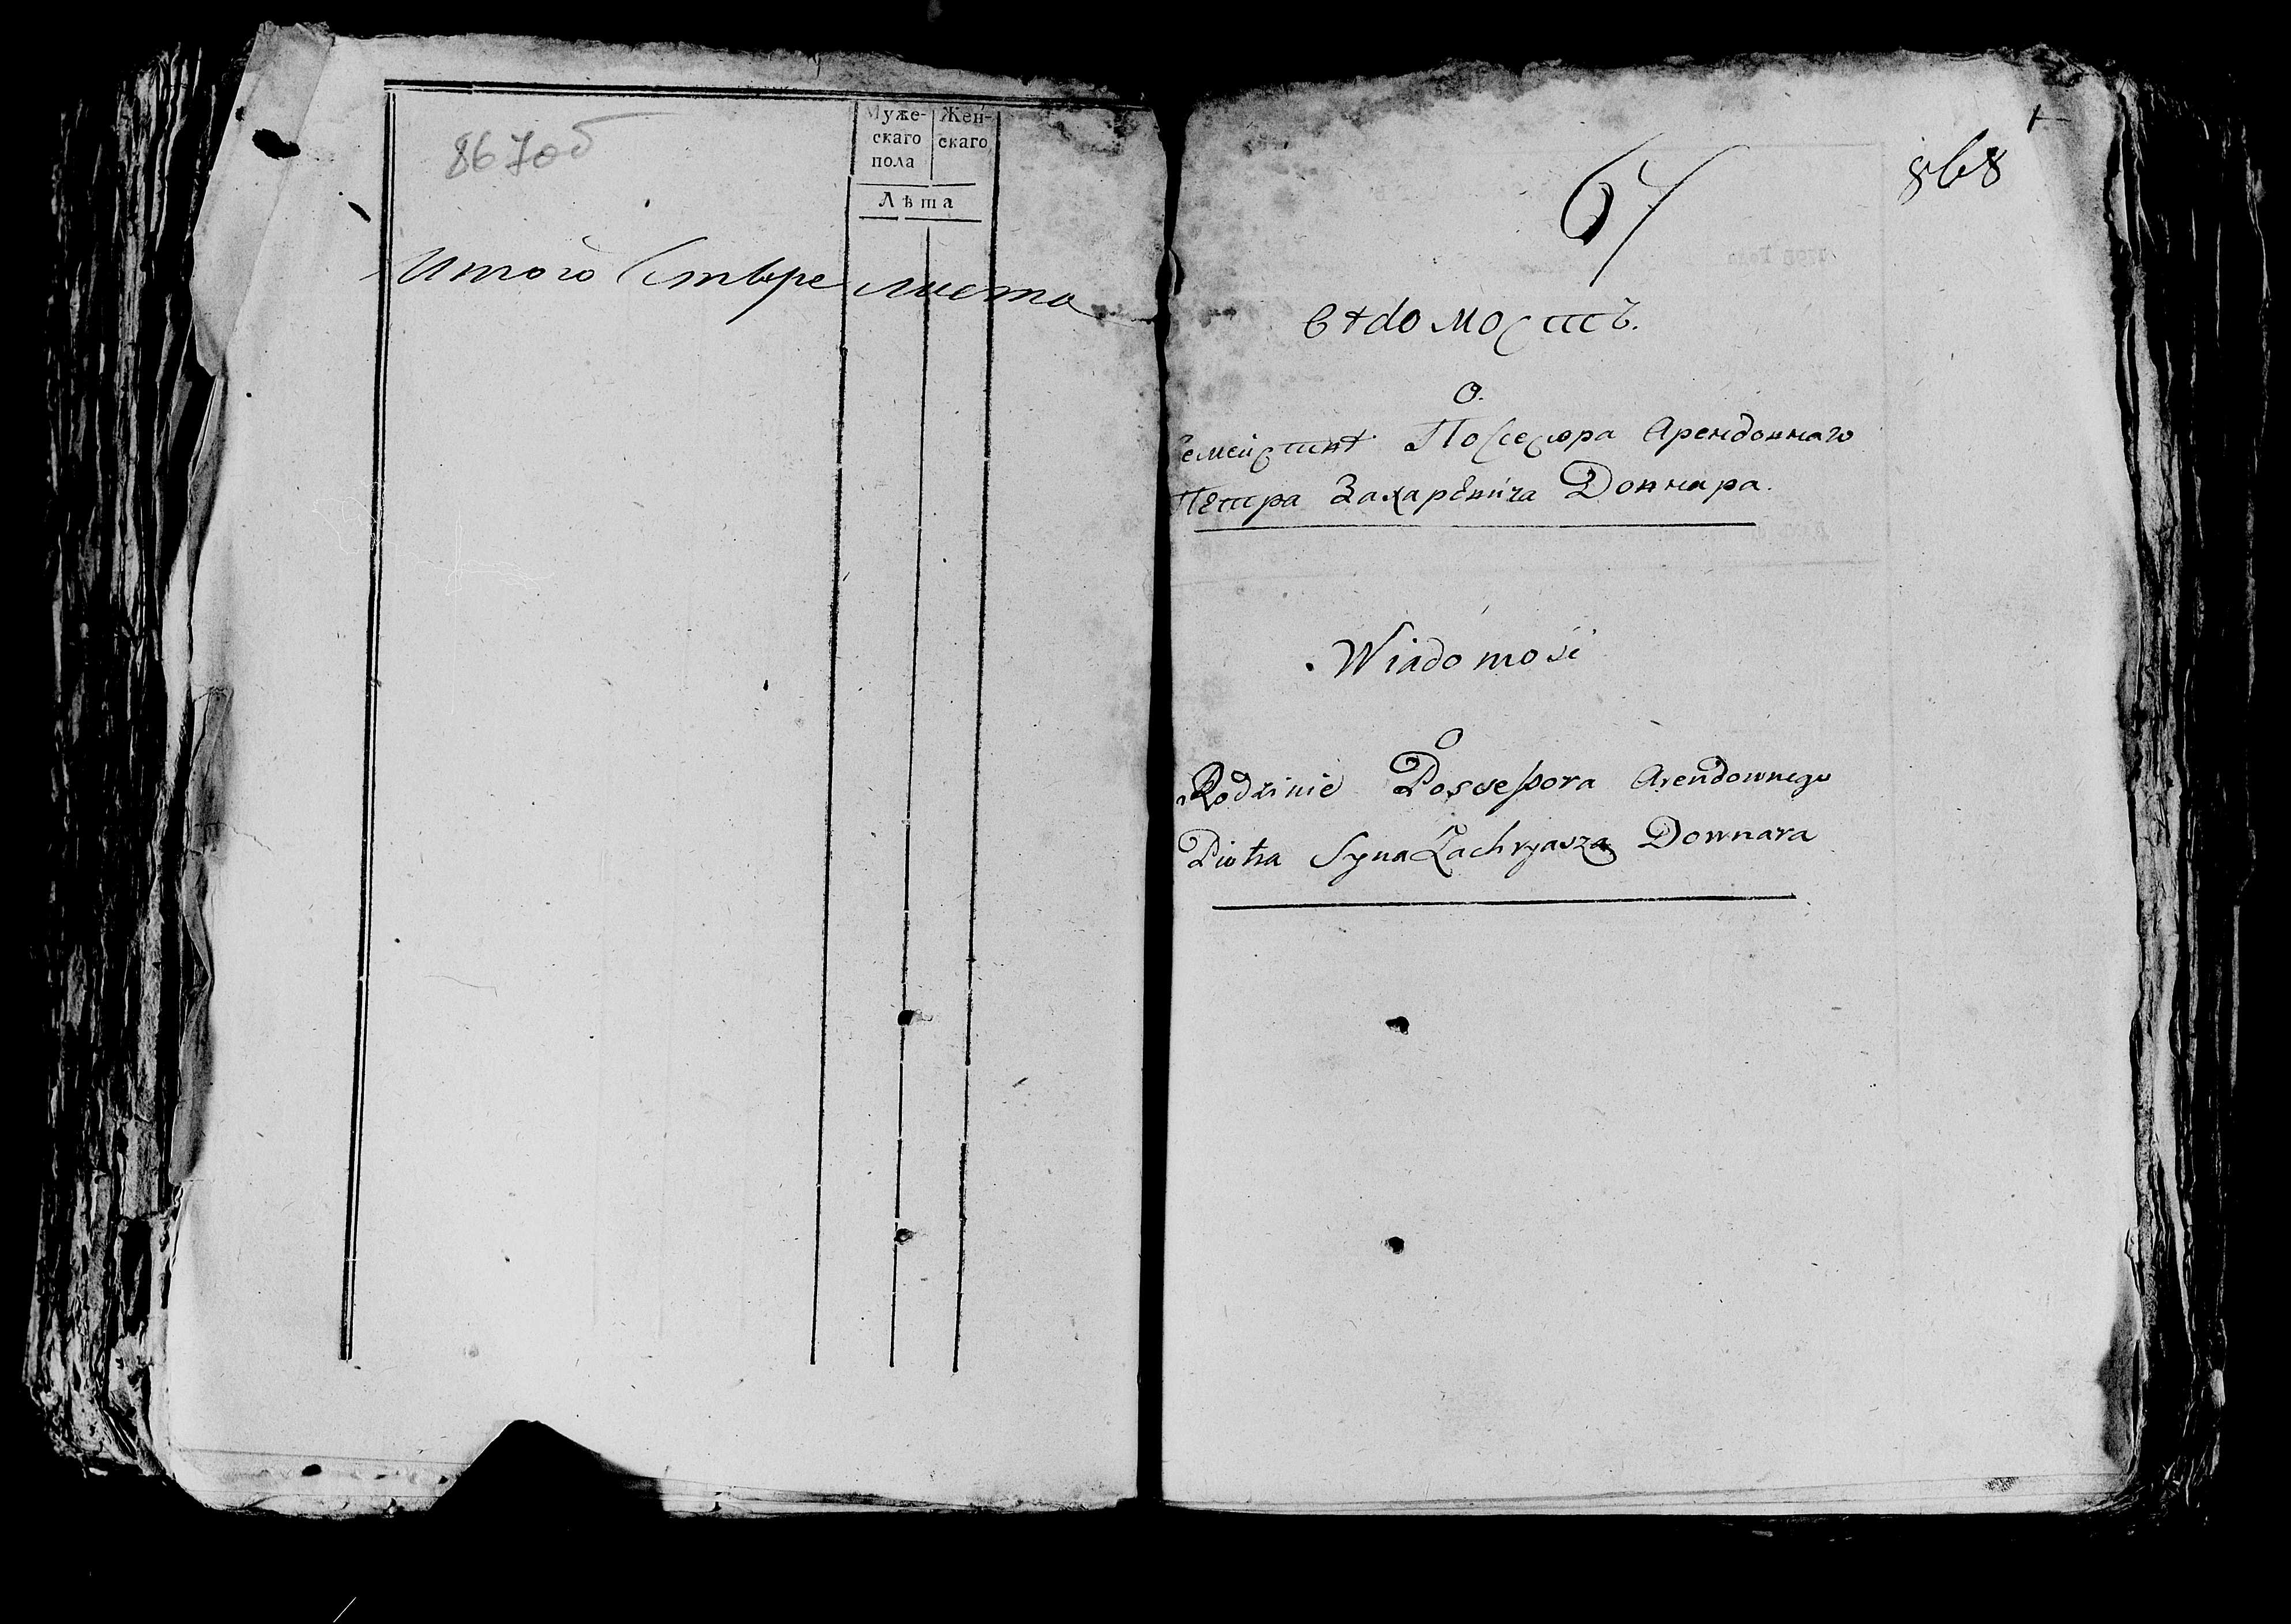 867об
Муже-
скаго
пола
Жен-
скаго
Лѣта
Итого
листа
868
67
вѣдомость.
О.
Семействѣ Поссесора Арендовнаго
Петра Захаревича Довнара.
Wiadomość
O
Rodzinie Possessora Arendownego
Piotra Syna Zachryasza Downara